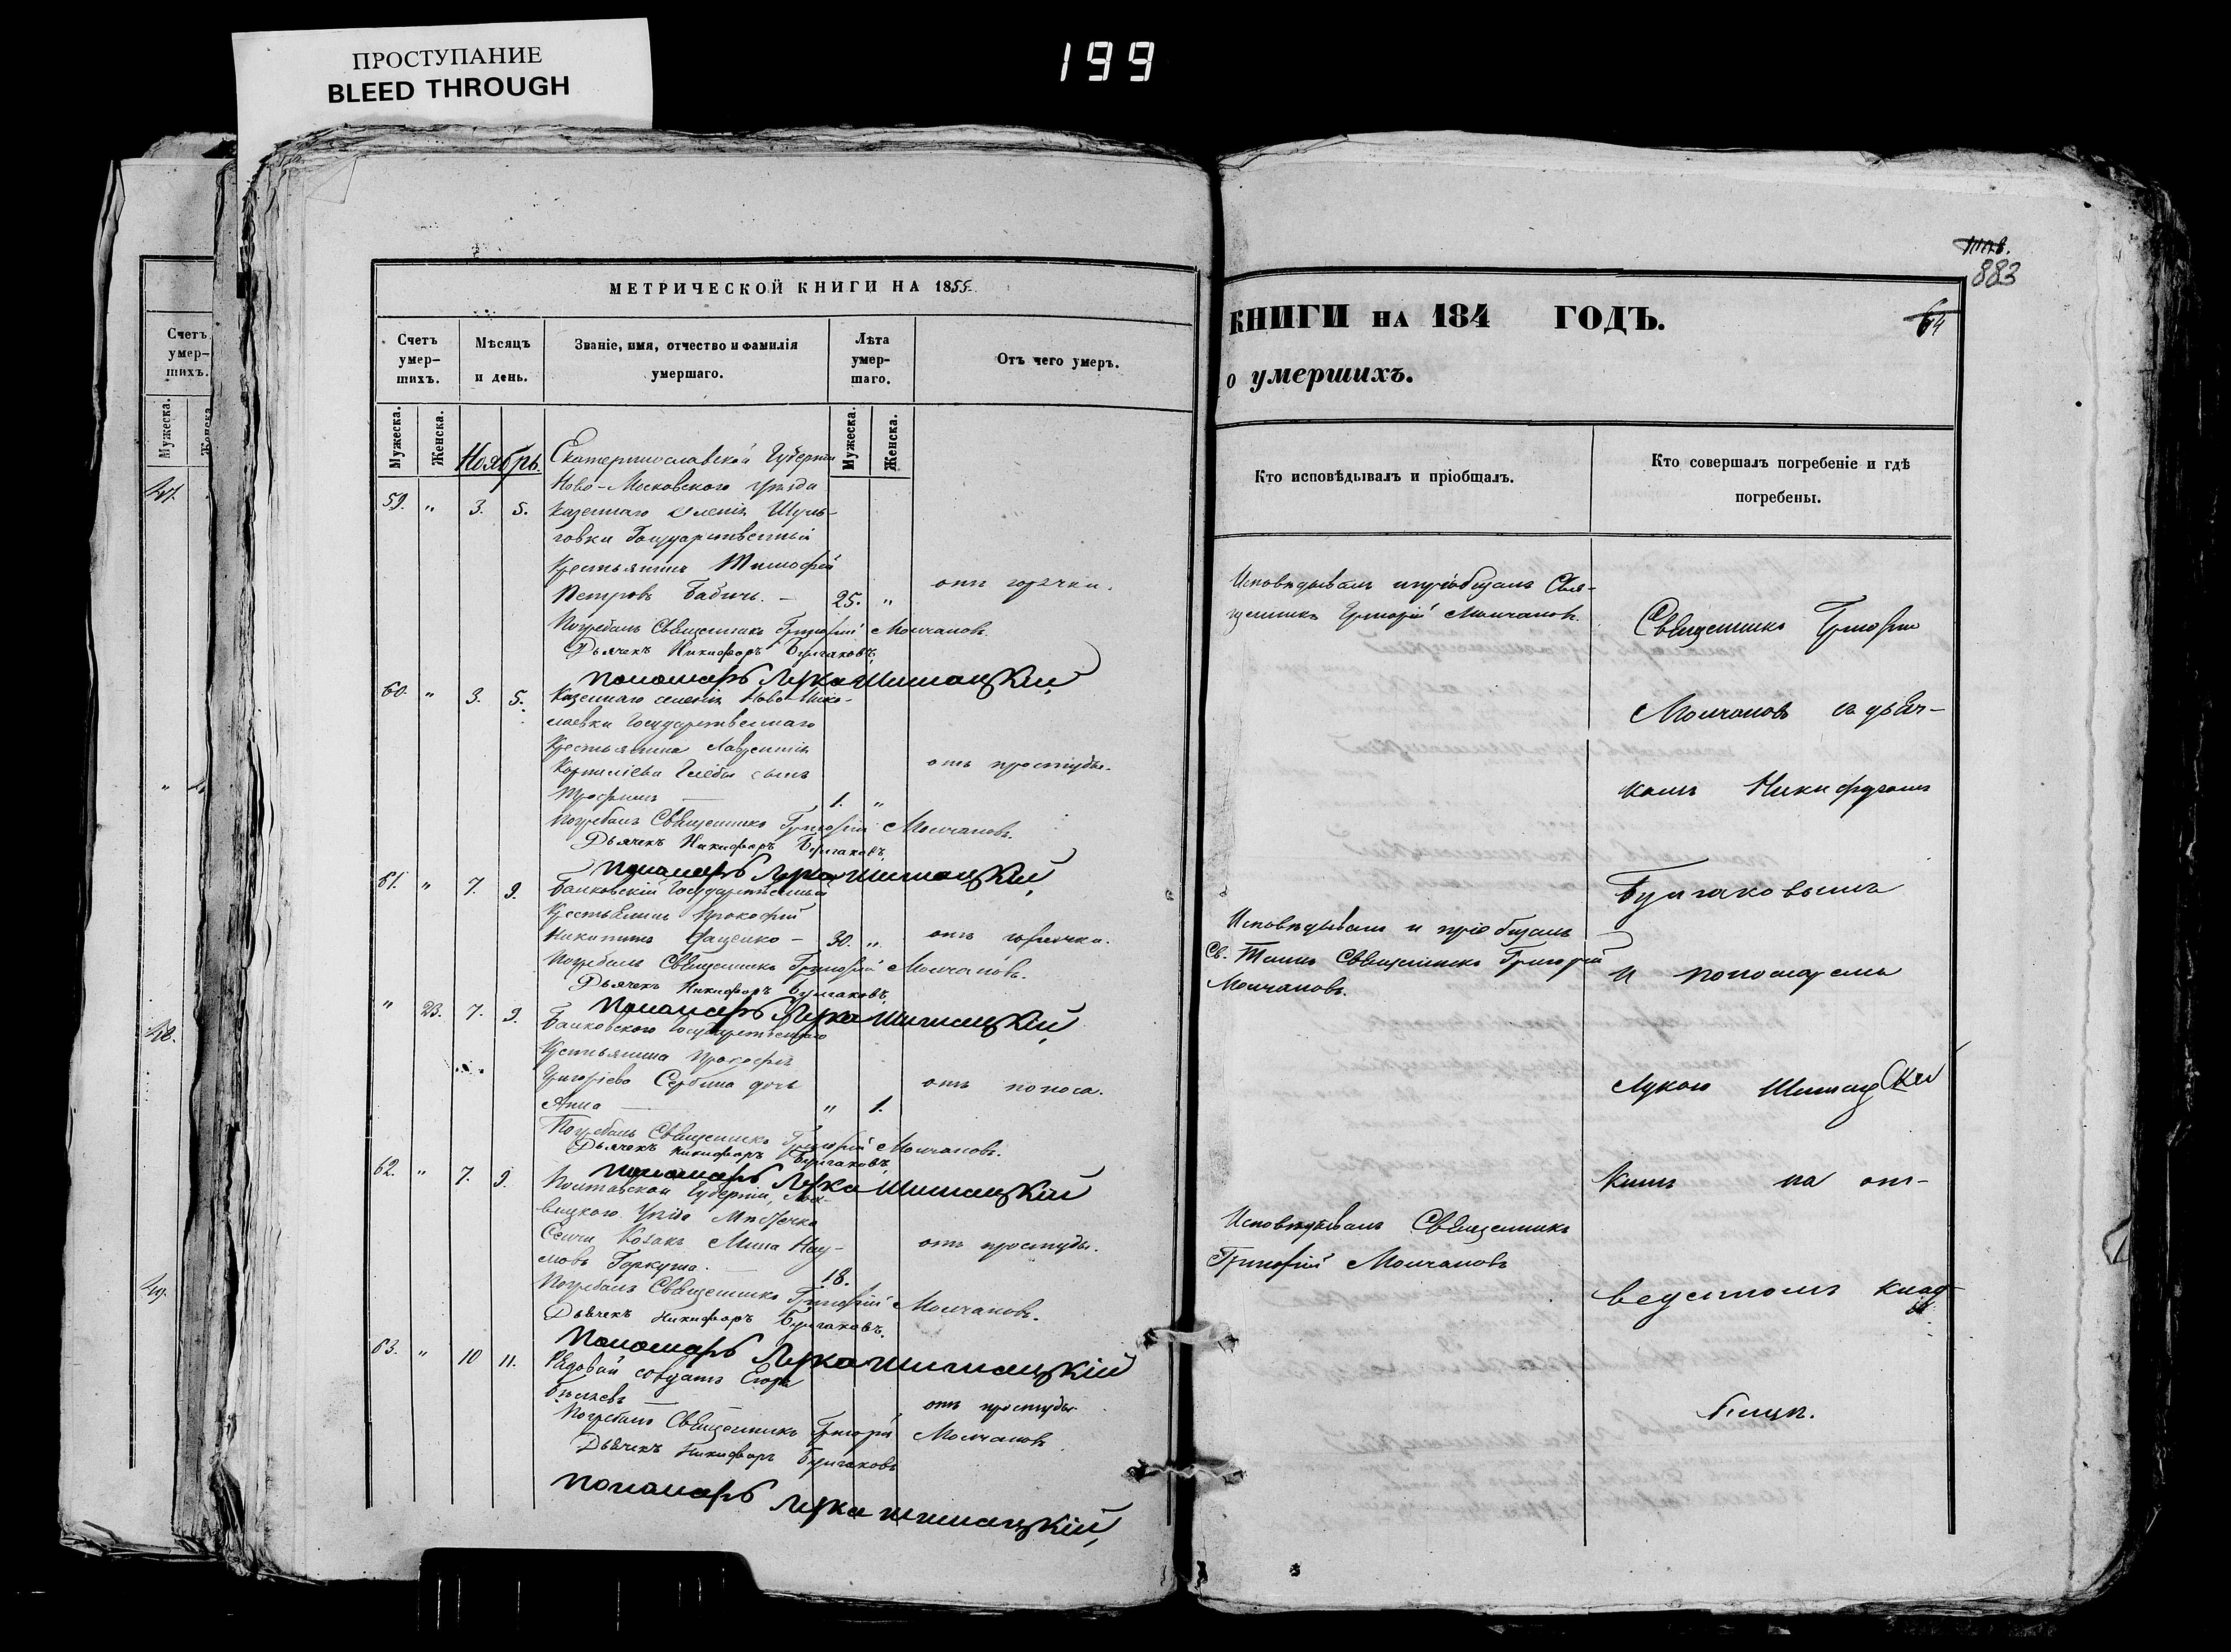 ПРОСТУПАНИЕ
BLEED THROUGH
199
Счетъ
умер-
шихъ.
Мужеска.
47.
48.
49.
МЕТРИЧЕСКОЙ КНИГИ НА 1855.
Счетъ умер-шихъ.
Мѣсяцъ и день.
Званіе, имя, отчество и фамилія умершаго.
Лѣта умер-шаго.
Отъ чего умеръ.
Мужеска. Женска.
Ноябрь.
Мужеска. Женска.
Екатеринославской Губерніи
Ново-Московскаго уѣзда
59. " 3. 5. Казеннаго селенія Шуль-
говки Государственный
Крестьянинъ Тимофей
Петровъ Бабичь. — 25. " отъ горячки.
Погребалъ Священникъ Григорій Молчановъ.
Дьячекъ Никифоръ Булгаковъ,
пономарь Лука Шишацкій,
60. " 3. 5. Казеннаго селенія Ново-Нико-
лаевки Государственнаго
Крестьянина Лаврентія
Корнилієва Глебы сынъ отъ простуды.
Трофимъ — 1. "
Погребалъ Священникъ Григорій Молчановъ.
Дьячекъ Никифоръ Булгаковъ,
пономарь Лука Шишацкій,
61. " 7. 9. Балковскій Государственный
Крестьянинъ Прокофій
Никитинъ — 30. " отъ горячки.
Погребалъ Священникъ Григорій Молчановъ.
Дьячекъ Никифоръ Булгаковъ,
пономарь Лука Шишацкій,
" 23. 7. 9. Балковского Государственнаго
Крестьянина Прокофія
Григоріева Сербина дочь отъ поноса.
Анна — " 1.
Погребалъ Священникъ Григорій Молчановъ.
Дьячекъ Никифоръ Булгаковъ,
пономарь Лука Шишацкій
62. " 7. 9. Полтавской Губерніи, Лох-
вицкого Уѣзда Мѣстечка
Сенчи Козакъ Мина Нау- отъ простуды.
мовъ Горкуша. — 18.
Погребалъ Священникъ Григорій Молчановъ.
Дьячекъ Никифоръ Булгаковъ.
пономарь Лука Шишацкій
63. " 10 11. Рядовой солдатъ Егоръ
Бѣляевъ — отъ простуды
Погребалъ Священникъ Григорій Молчановъ
Дьячекъ Никифоръ Булгаковъ
пономарь Лука Шишацкій,
883
64
КНИГИ НА 184 ГОДЪ.
о умершихъ.
Кто исповѣдывалъ и пріобщалъ.
Кто совершалъ погребеніе и гдѣ погребены.
Исповѣдывалъ и пріобщалъ Свя-
щенникъ Григорій Молчановъ.
Исповѣдывалъ и пріобщалъ
Св. Таинъ Священникъ Григорій
Молчановъ.
Исповѣдывалъ Священникъ
Григорій Молчановъ
Священникъ Григорій
Молчановъ съ дьяч-
комъ Никифоромъ
Булгаковымъ
и пономаремъ
Лукою Шишац
кимъ на от-
веденномъ клад
бищѣ.